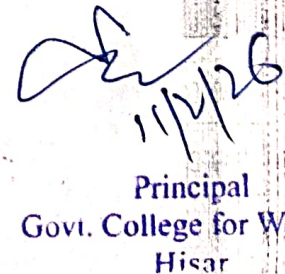 11/2/26
Principal
Govt. College for W
Hisar